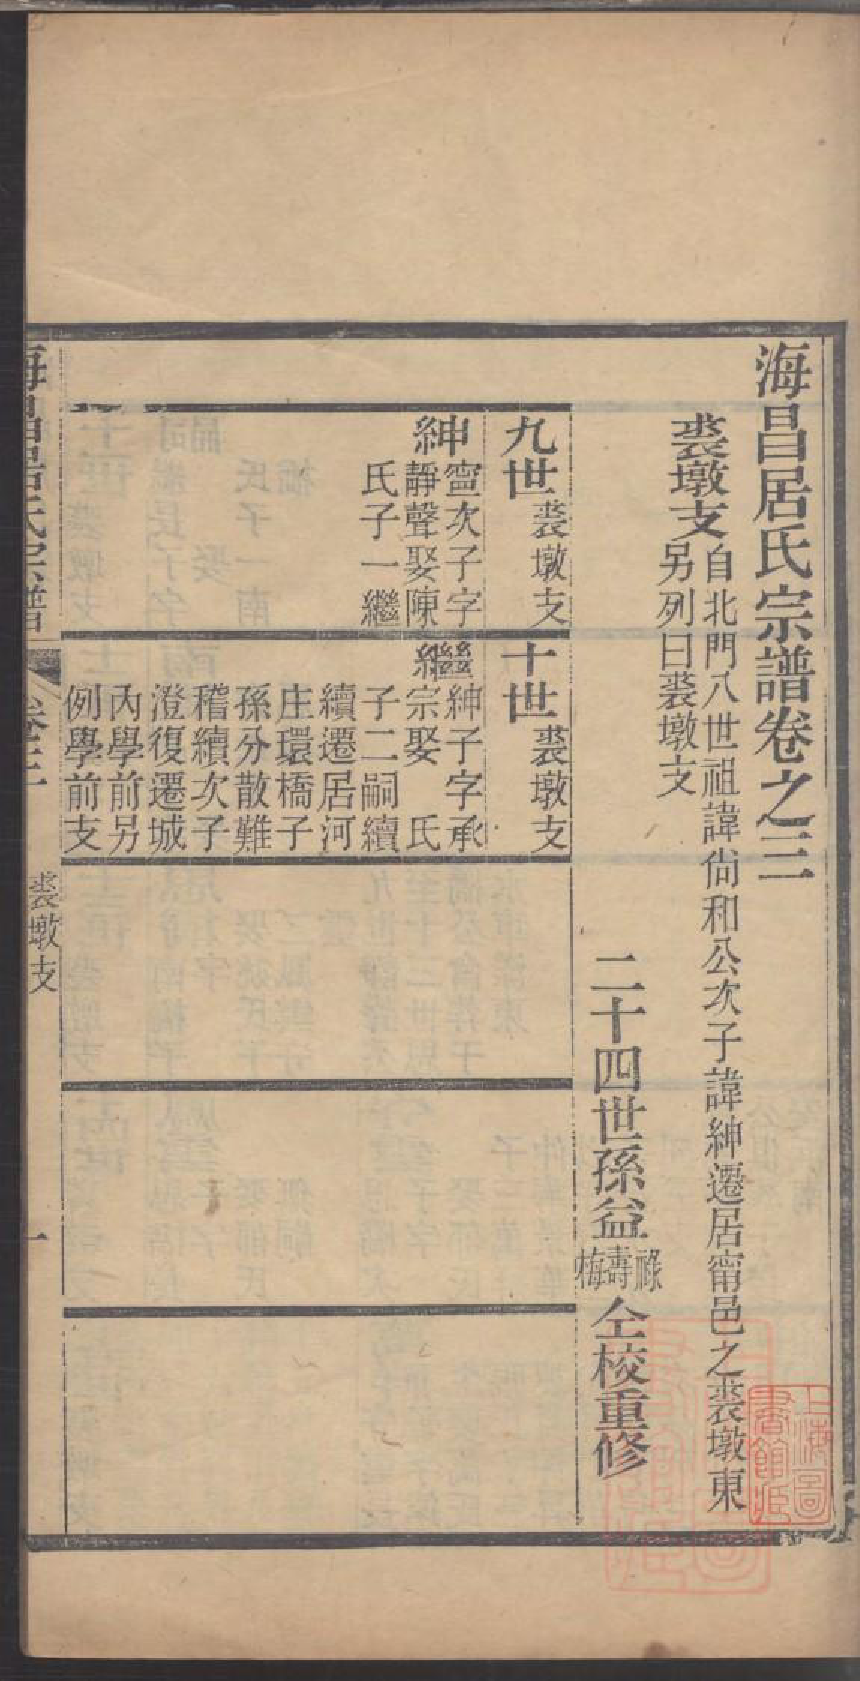 海昌居氏宗譜卷之三
裘墩支
自北門八世祖諱尙和公次子諱紳遷居甯邑之裘墩東
另列曰裘墩支
二十四世孫益
祿
壽
梅
仝校重修
九世裘墩支
紳甯次子字
靜聲娶陳
氏子一繼
十世裘墩支
繼紳子字承
宗娶　氏
子二嗣續
續遷居河
庄環橋子
孫分散難
稽續次子
澄復遷城
內學前另
例學前支
海昌居氏宗譜
卷三
裘墩支
一
上海圖
書館藏